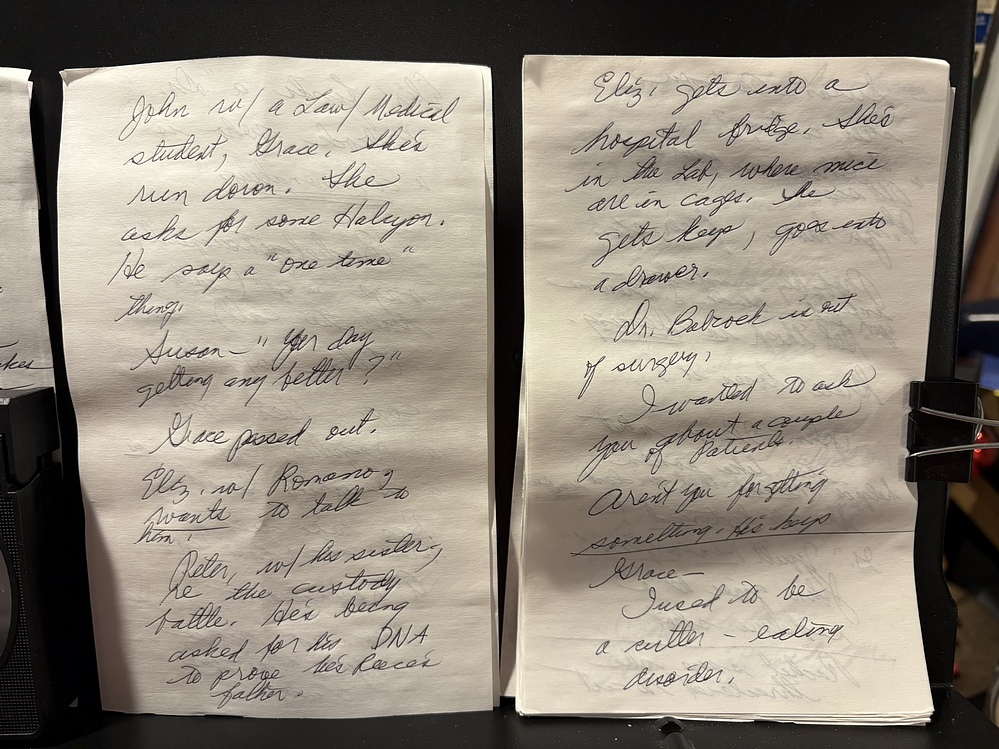 John w/ a Law/Medical
student, Grace. She's
run down. She
asks for some Halcyon.
He says a "one time"
thing.
Susan - "Yer day
getting any better?"
Grace passed out.
Eliz. w/ Romano,
wants to talk to
him.
Peter, w/ his sister,
re the custody
battle. He's being
asked for his DNA
to prove he's Reece's
father.
Eliz. gets into a
hospital bridge. She's
in the Lab, where mice
are in cages. She
gets keys, goes into
a drawer.
Dr. Babcock is out
of surgery.
I wanted to ask
you about a couple
of Patients.
Aren't you forgetting
something. His keys
Grace -
I used to be
a cutter - eating
disorder.